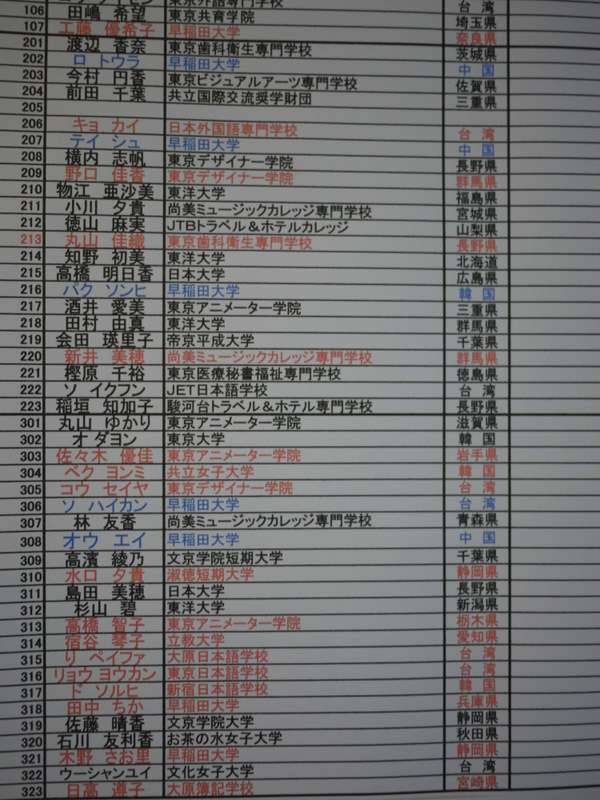 東京外語専門学校
106 田嶋 希望 東京共育学院 台 湾
107 工藤 優希子 早稲田大学 埼玉県
201 渡辺 香奈 東京歯科衛生専門学校 奈良県
202 ロ トウラ 早稲田大学 茨城県
203 今村 円香 東京ビジュアルアーツ専門学校 中 国
204 前田 千葉 共立国際交流奨学財団 佐賀県
205 三重県
206 キョ カイ 日本外国語専門学校 台 湾
207 テイ シュ 早稲田大学 中 国
208 横内 志帆 東京デザイナー学院 長野県
209 野口 佳香 東京デザイナー学院 群馬県
210 物江 亜沙美 東洋大学 福島県
211 小川 夕貴 尚美ミュージックカレッジ専門学校 宮城県
212 徳山 麻実 JTBトラベル&ホテルカレッジ 山梨県
213 丸山 佳織 東京歯科衛生専門学校 長野県
214 知野 初美 東洋大学 北海道
215 高橋 明日香 日本大学 広島県
216 パク ソンヒ 早稲田大学 韓 国
217 酒井 愛美 東京アニメーター学院 三重県
218 田村 由真 東洋大学 群馬県
219 会田 瑛里子 帝京平成大学 千葉県
220 新井 美穂 尚美ミュージックカレッジ専門学校 群馬県
221 樫原 千裕 東京医療秘書福祉専門学校 徳島県
222 ソ イクフン JET日本語学校 台 湾
223 稲垣 知加子 駿河台トラベル&ホテル専門学校 長野県
301 丸山 ゆかり 東京アニメーター学院 滋賀県
302 オ ダヨン 東京大学 韓 国
303 佐々木 優佳 東京アニメーター学院 岩手県
304 ペク ヨンミ 共立女子大学 韓 国
305 コウ セイヤ 東京デザイナー学院 台 湾
306 ソ ハイカン 早稲田大学 台 湾
307 林 友香 尚美ミュージックカレッジ専門学校 青森県
308 オウ エイ 早稲田大学 中 国
309 高濱 綾乃 文京学院短期大学 千葉県
310 水口 夕貴 淑徳短期大学 静岡県
311 島田 美穂 日本大学 長野県
312 杉山 碧 東洋大学 新潟県
313 高橋 智子 東京アニメーター学院 栃木県
314 宿谷 琴子 立教大学 愛知県
315 り ペイファ 大原日本語学校 台 湾
316 リョウ ヨウカン 東京日本語学校 台 湾
317 ド ソルヒ 新宿日本語学校 韓 国
318 田中 ちか 早稲田大学 兵庫県
319 佐藤 晴香 文京学院大学 静岡県
320 石川 友利香 お茶の水女子大学 秋田県
321 木野 さお里 早稲田大学 静岡県
322 ウーシャンユイ 文化女子大学 台 湾
323 日高 遵子 大原簿記学校 宮崎県